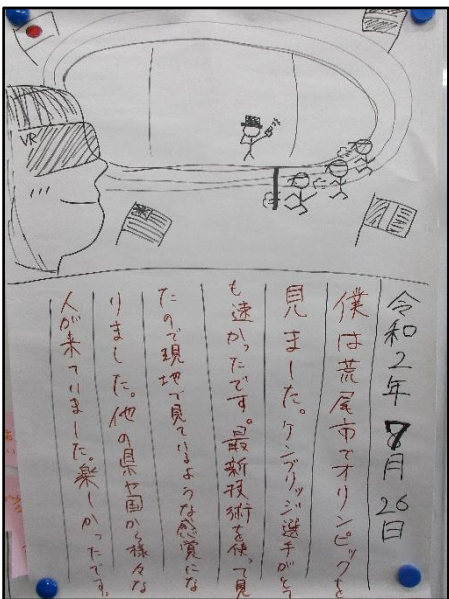 VR
令和2年7月26日
僕は荒尾市でオリンピックを
見ました。ケンブリッジ選手がとて
も速かったです。最新技術を使って見
たので現地で見ているような感覚にな
りました。他の県や国から様々な
人が来ていました。楽しかったです。